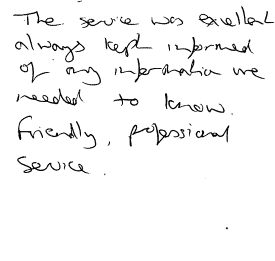 The service was excellent
always kept informed
of any information we
needed to know.
Friendly, professional
service.